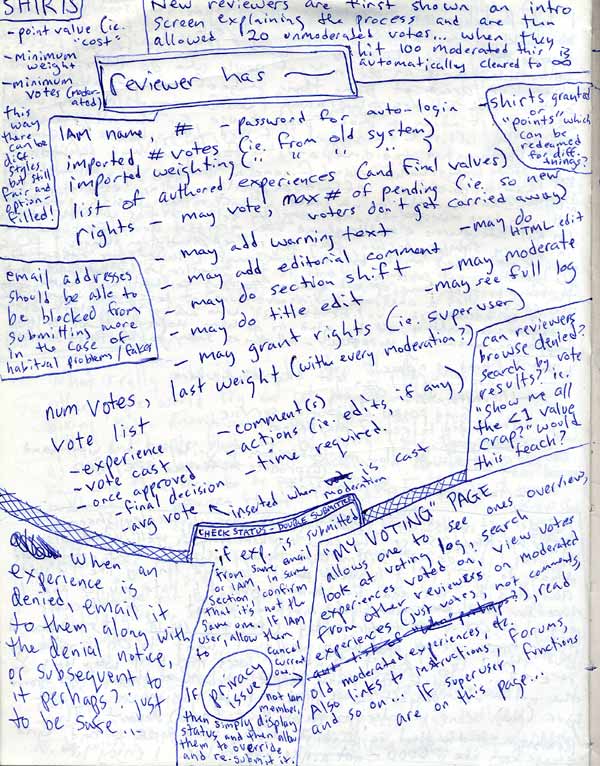 SHIRTS
- point value (ie. "cost")
- minimum weight
- minimum votes (moderated)
this way, there can be diff. styles, but still fair and option-filled!
New reviewers are first shown an intro
screen explaining the process and are then
allowed 20 unmoderated votes... when they
hit 100 moderated this is
automatically cleared to ∞
reviewer has
IAM name, #
- password for auto-login
imported # votes (ie. from old system)
imported weighting (" " " ")
list of authored experiences (and final values)
rights - may vote, max # of pending (ie. so new
voters don't get carried away)
- may add warning text
- may add editorial comment
- may do section shift
- may do title edit
- may grant rights (ie. superuser)
- may do HTML edit
- may moderate
- may see full log
- shirts granted
or "points" which
can be
redeemed
for diff
things?
email addresses
should be able to
be blocked from
submitting more
in the case of
habitual problems/fakes
num votes, last weight (with every moderation?)
vote list
- experience
- vote cast
- once approved
- final decision
- avg vote
- comment(s)
- actions (ie. edits, if any)
- time required.
inserted when is cast
moderation
can reviewers
browse denied?
search by vote
results? ie.
"show me all
the <1 value
crap?" would
this teach?
When an
experience is
denied, email it
to them along with
the denial notice,
or subsequent to
it perhaps? just
to be safe...
CHECK STATUS - DOUBLE SUBMITTED
if exp. is submitted
from same email
or IAM, in same
section, confirm
that it's not the
same one. If IAM
user, allow them
to cancel
current
one.
privacy
issue
If not IAM
member,
then simply display
status and then allow
them to override
and re-submit it.
"MY VOTING" PAGE
allows one to see ones overview,
look at voting log, search
experiences voted on, view votes
from other reviewers on moderated
experiences (just votes, not comments,
), read
old moderated experiences, etc.
Also links to instructions, forums,
and so on... If superuser, functions
are on this page...